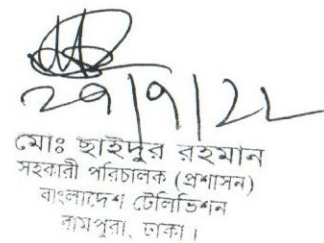 ২৭/৭/২২
মোঃ ছাইদুর রহমান
সহকারী পরিচালক (প্রশাসন)
বাংলাদেশ টেলিভিশন
রামপুরা, ঢাকা।